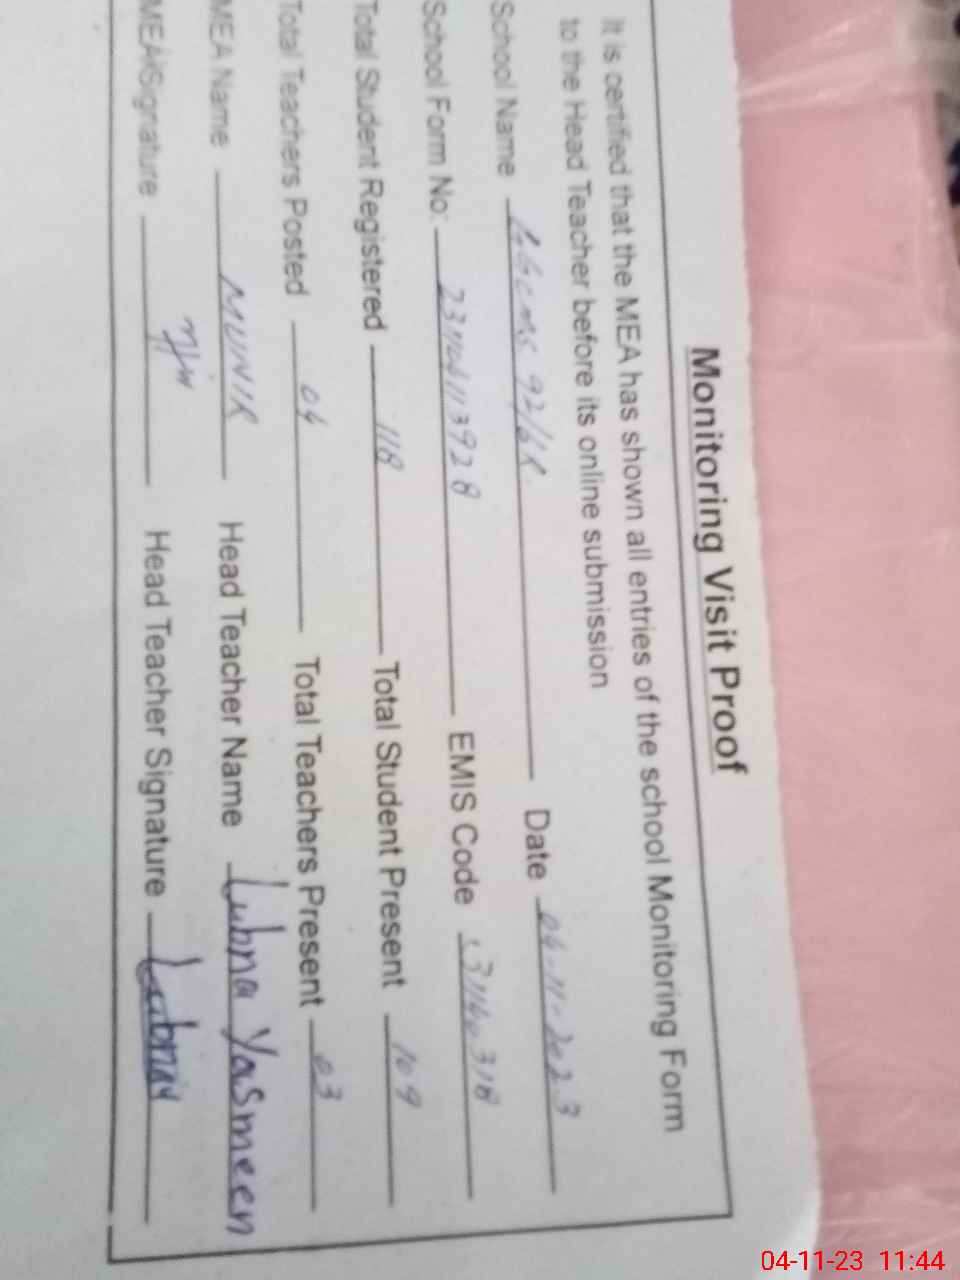 Monitoring Visit Proof
It is certified that the MEA has shown all entries of the school Monitoring Form
to the Head Teacher before its online submission
School Name 92/6R Date 04-11-2023
School Form No: EMIS Code
Total Student Registered 118 Total Student Present 109
Total Teachers Posted 04 Total Teachers Present 03
MEA Name MUNIR Head Teacher Name Lubna Yasmeen
MEA Signature Head Teacher Signature Lubna
04-11-23 11:44